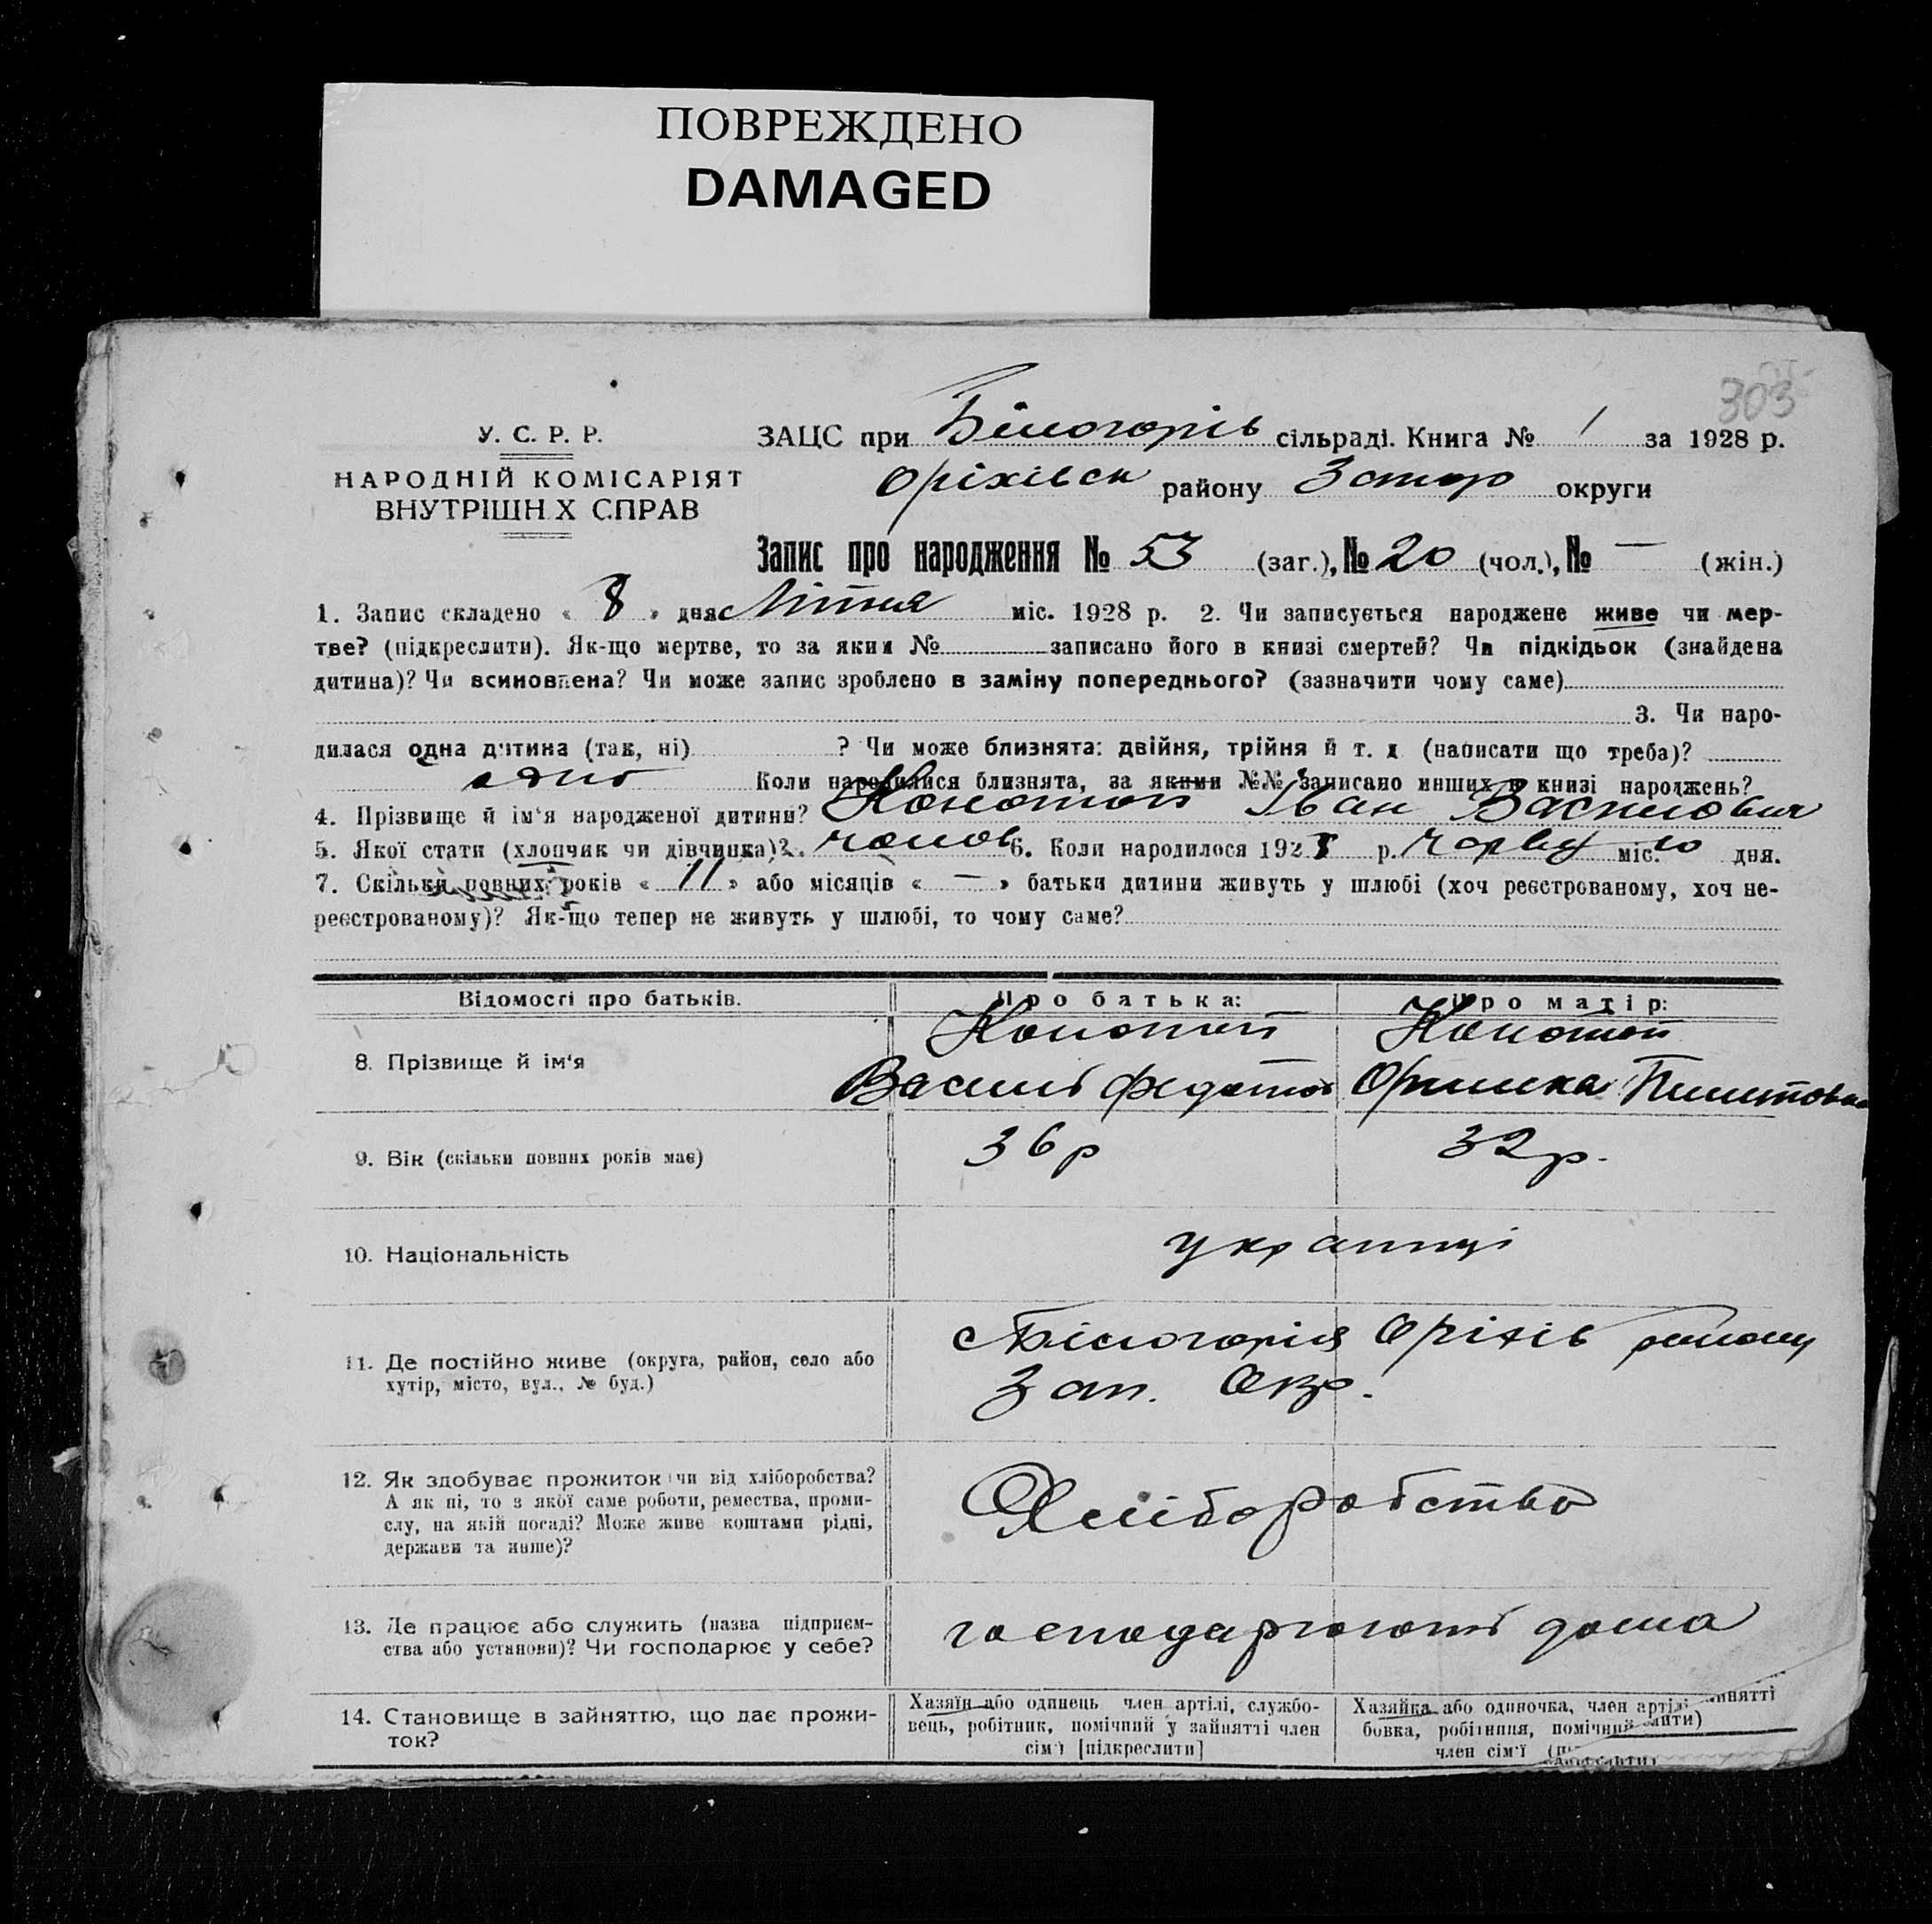 ПОВРЕЖДЕНО
DAMAGED
303
У. С. Р. Р.
НАРОДНІЙ КОМІСАРІЯТ
ВНУТРІШН Х СПРАВ
ЗАЦС при Білогорів сільраді. Книга № 1 за 1928 р.
Оріхівськ району Запор округи
Запис про народження № 53 (заг.), № 20 (чол.), № — (жін.)
1. Запис складено « 8 » дня Літня міс. 1928 р. 2. Чи записується народжене живе чи мер-
тве? (підкреслити). Як-що мертве, то за яким № записано його в книзі смертей? Чи підкідьок (знайдена
дитина)? Чи всиновлена? Чи може запис зроблено в заміну попереднього? (зазначити чому саме)
3. Чи наро-
дилася одна дитина (так, ні) ? Чи може близнята: двійня, трійня й т. д (написати що треба)?
одно Коли народилися близнята, за якими №№ записано инших в книзі народжень?
4. Прізвище й ім'я народженої дитини? Конотоп Іван Василович
5. Якої стати (хлопчик чи дівчинка)? чолов 6. Коли народилося 1928 р. Червц міс. 10 дня.
7. Скільки повних років « 11 » або місяців « — » батьки дитини живуть у шлюбі (хоч реєстрованому, хоч не-
реєстрованому)? Як-що тепер не живуть у шлюбі, то чому саме?
Відомості про батьків. Про батька: Про матір:
8. Прізвище й ім'я Конотоп Конотоп
Василь Федотов Оришка
9. Вік (скільки повних років має) 36 р 32 р.
10. Національність українці
11. Де постійно живе (округа, район, село або
хутір, місто, вул., № буд.)
с Білогорія Оріхів району
Зап. Окр.
12. Як здобуває прожиток (чи від хліборобства?
А як ні, то з якої саме роботи, ремества, проми-
слу, на якій посаді? Може живе коштами рідні,
держави та инше)?
Хліборобство
13. Де працює або служить (назва підприєм-
ства або установи)? Чи господарює у себе?
господарюють дома
14. Становище в зайняттю, що дає прожи-
ток?
Хазяїн або одинець член артілі, службо-
вець, робітник, помічний у зайнятті член
сім'ї [підкреслити]
Хазяйка або одиночка, член артілі
бовка, робітниця, помічний
член сім'ї